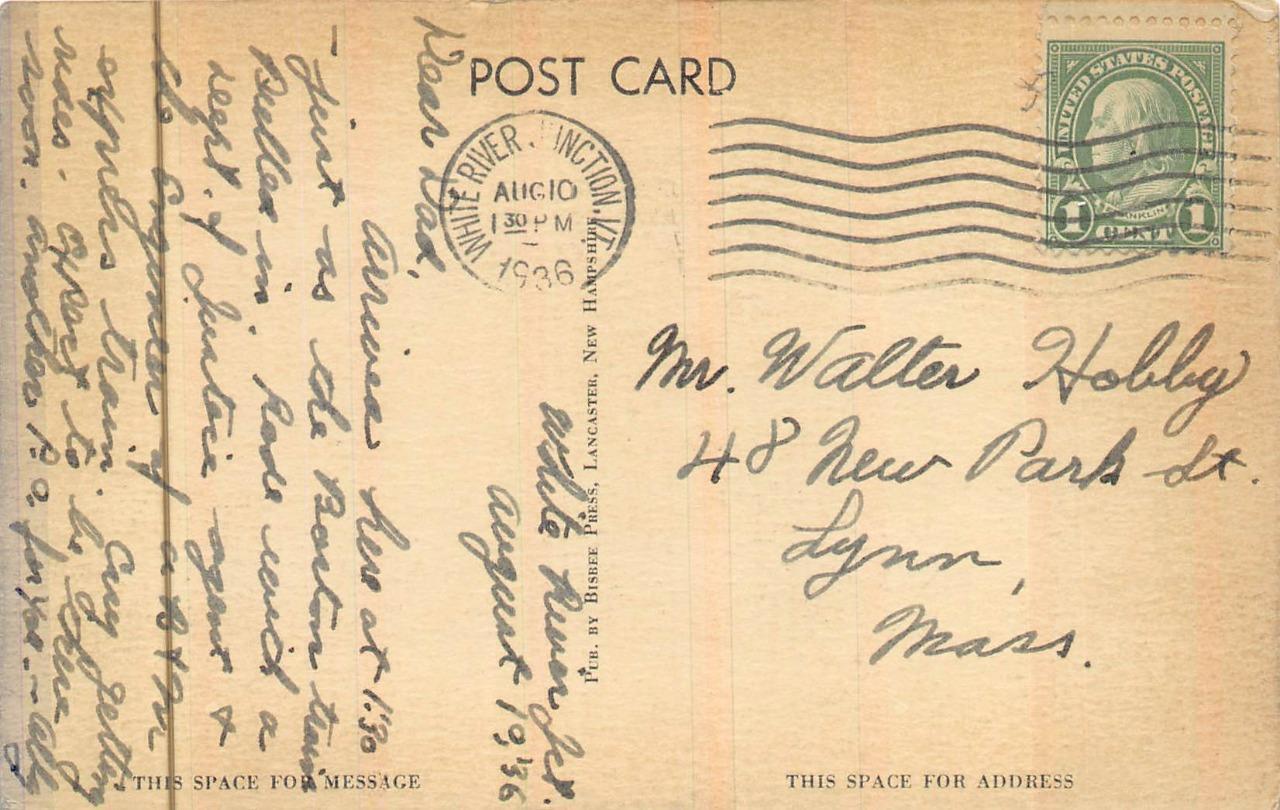 POST CARD
WHITE RIVER JUNCTION VT.
AUG 10
1 30 PM
1936
UNITED STATES POSTAGE
FRANKLIN
1 1
Mr. Walter Hobby
48 New Park St.
Lynn,
Mass.
White River Jct.
August 10, '36
Dear Dad,
Arrived here at 1:30
- Just as the Boston train
Pulled in. Rode with a
Dept. of Justice agent &
Engineer of a B & M
express train. Enjoy getting
rides. Expect to be home
soon. another P.O. for you
PUB. BY BISBEE PRESS, LANCASTER, NEW HAMPSHIRE.
THIS SPACE FOR MESSAGE
THIS SPACE FOR ADDRESS